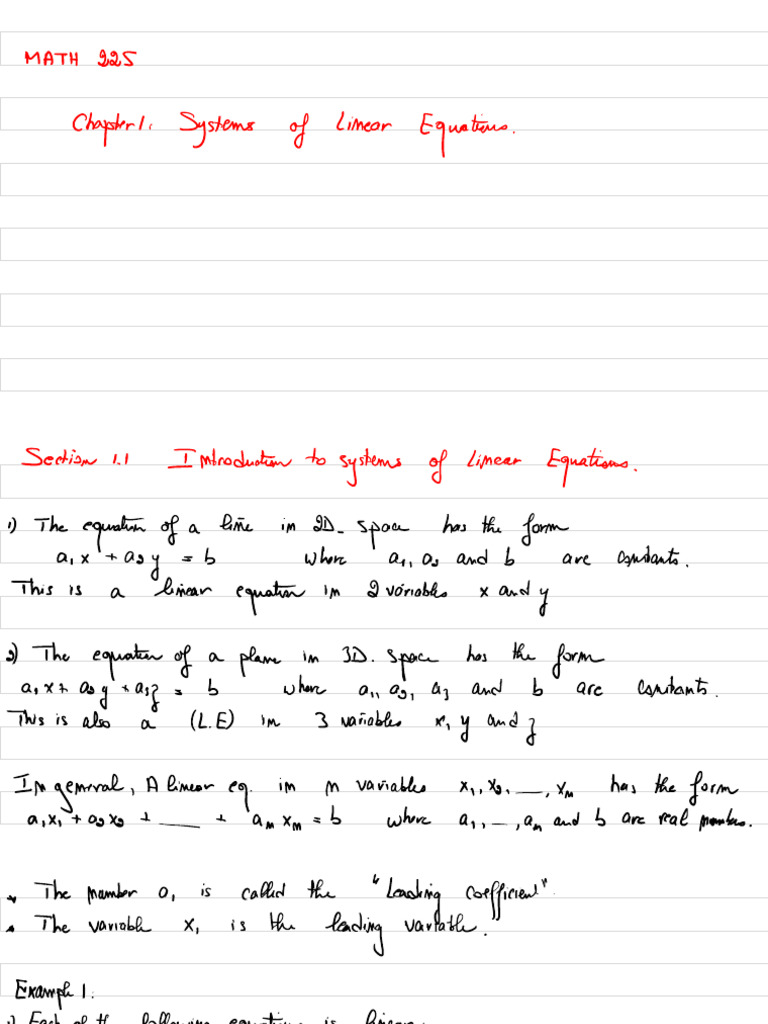 MATH 225
Chapter 1: Systems of Linear Equations.
Section 1.1 Introduction to systems of Linear Equations.
1) The equation of a line in 2D-space has the form
a₁x + a₂y = b where a₁, a₂ and b are constants.
This is a linear equation in 2 variables x and y
2) The equation of a plane in 3D.space has the form
a₁x + a₂y + a₃z = b where a₁, a₂, a₃ and b are constants.
This is also a (L.E) in 3 variables x, y and z
In general, A linear eq. in n variables x₁, x₂, __, xₙ has the form
a₁x₁ + a₂x₂ + ___ + aₙxₙ = b where a₁, __, aₙ and b are real numbers.
* The number a₁ is called the "Leading coefficient".
* The variable x₁ is the leading variable.
Example 1:
1) Each of the following equations is linear